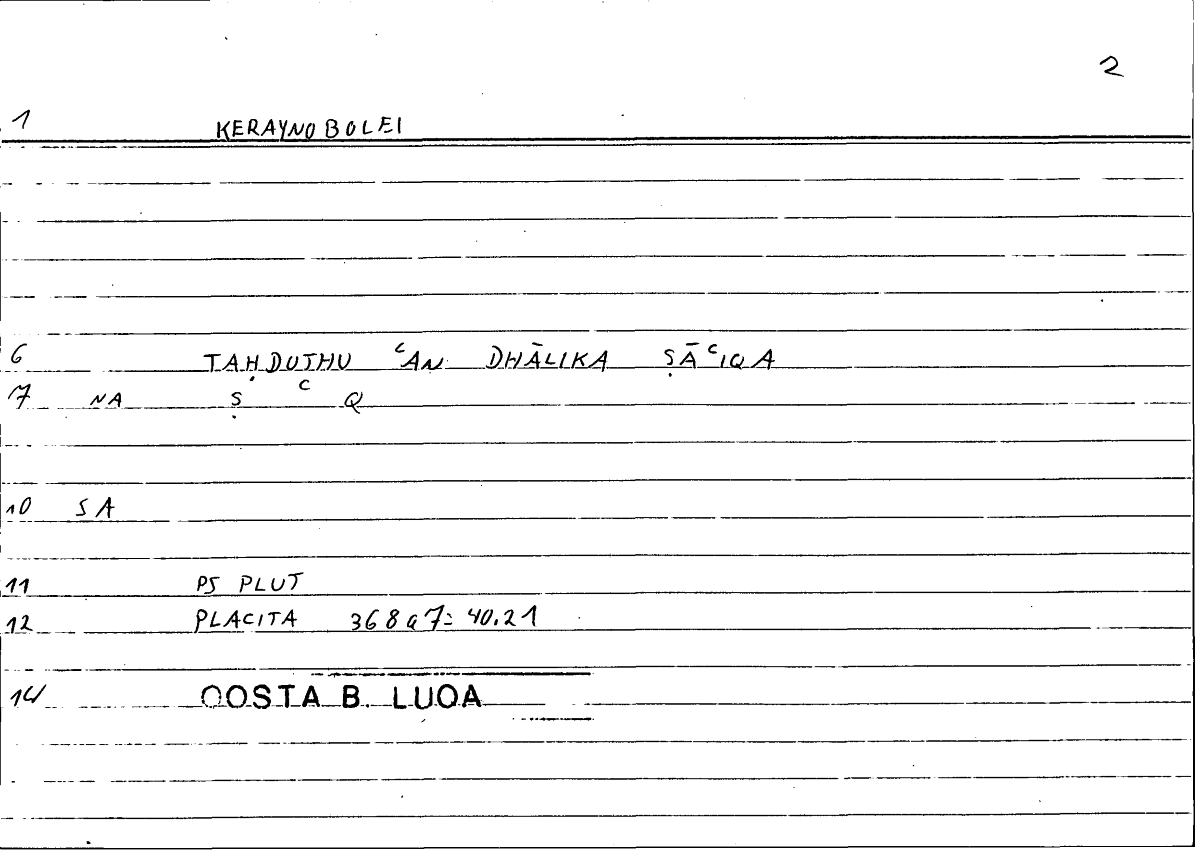 2
1 KERAYNOBOLEI
6 TAḤDUTHU ʿAN DHĀLIKA ṢĀʿIQA
7 NA Ṣ ʿ Q
10 SA
11 PS PLUT
12 PLACITA 368a7= 40.21
14 QOSTA B. LUQA